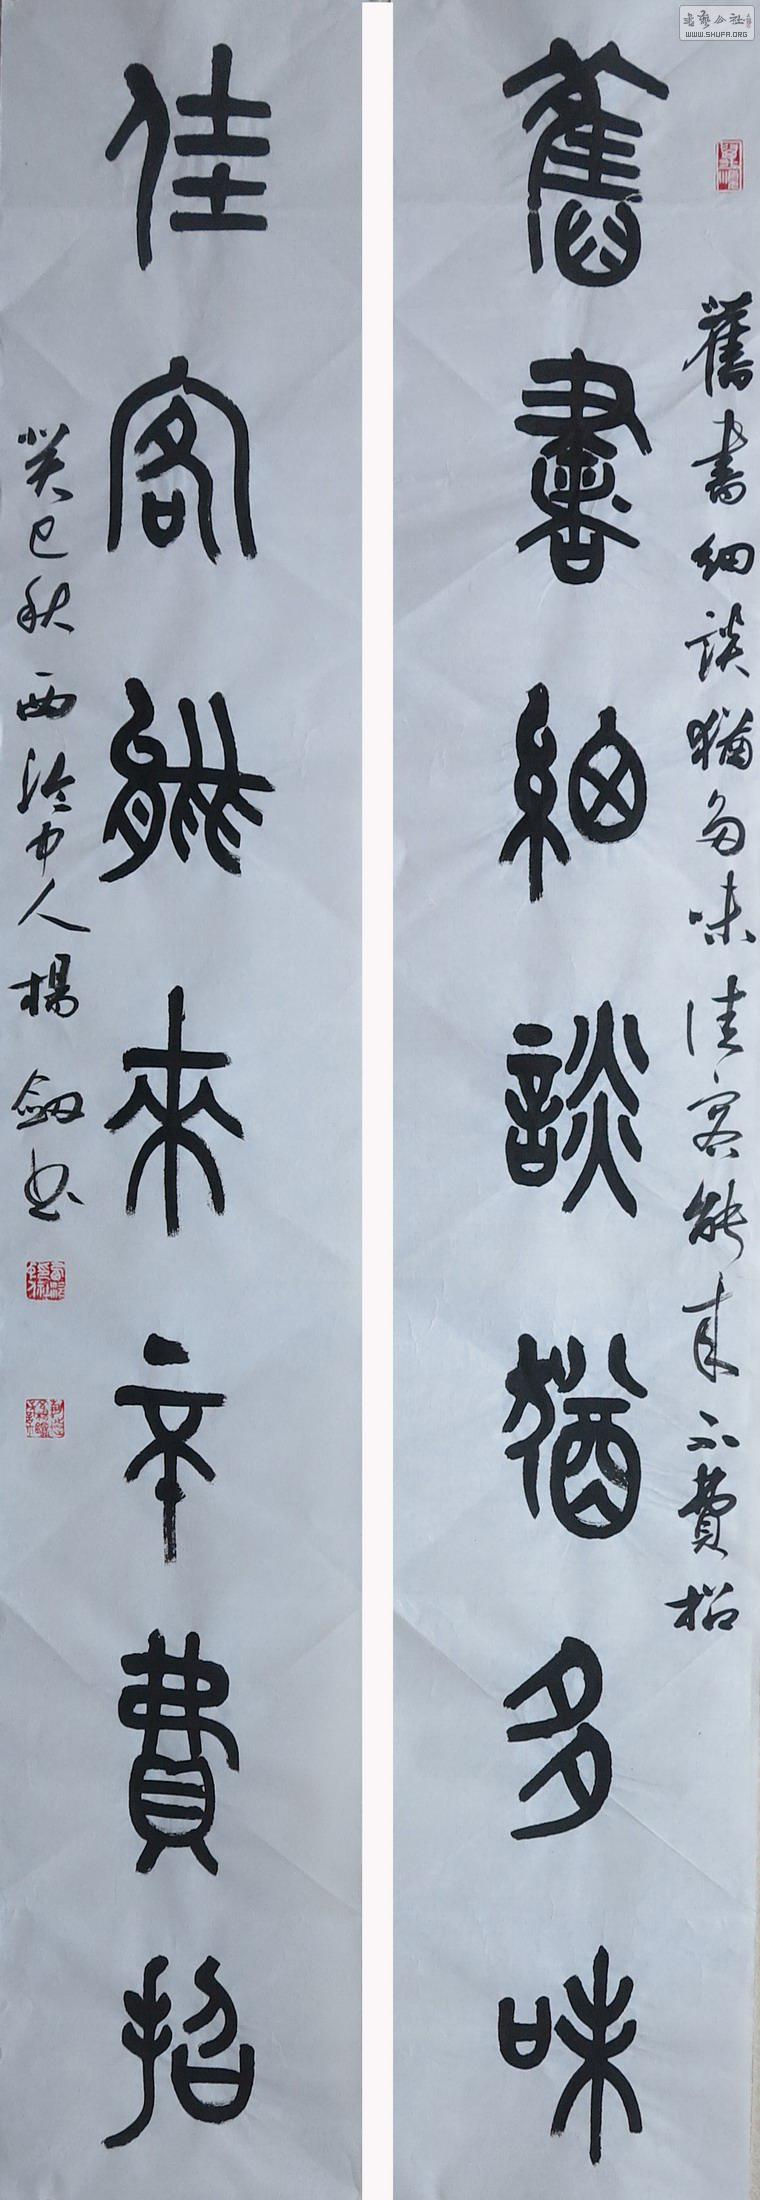 舊書細談猶多味
佳客能來不費招
舊書細談猶多味佳客能來不費招
癸巳秋西泠中人楊劔书
WWW.SHUFA.ORG